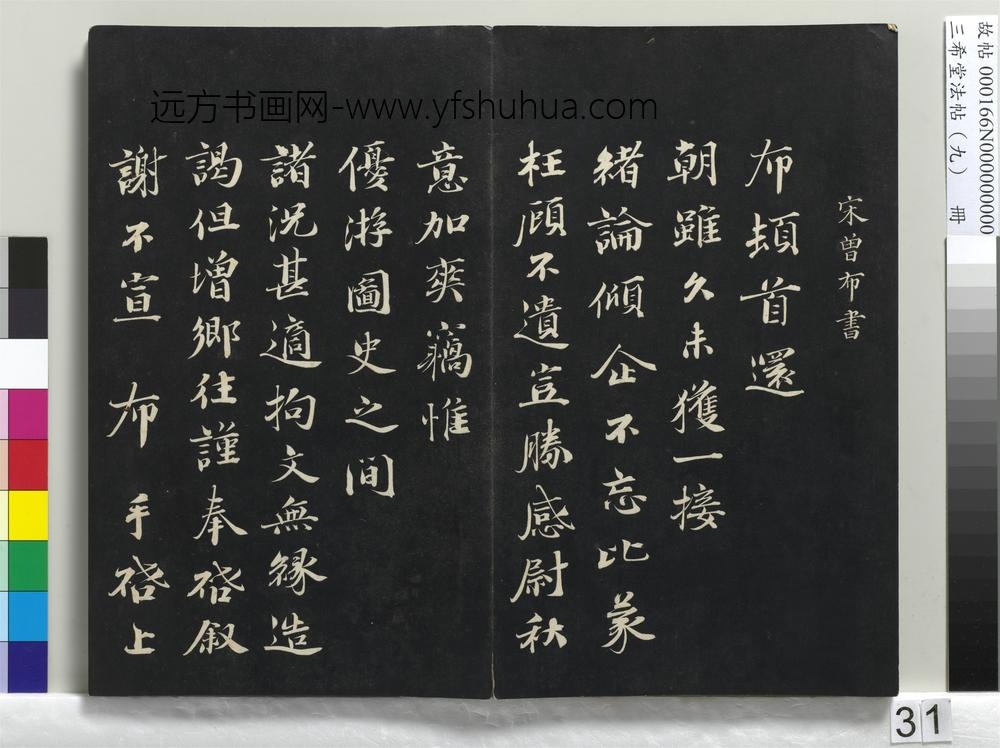 宋曾布書
布頓首還
朝雖久未獲一接
緒論傾企不忘比蒙
枉顧不遺豈勝感尉秋
意加爽竊惟
優游圖史之間
諸況甚適拘文無緣造
謁但增鄉往謹奉啓叙
謝不宣 布 手啓上
远方书画网-www.yfshuhua.com
故帖000166N000000000
三希堂法帖(九) 冊
31